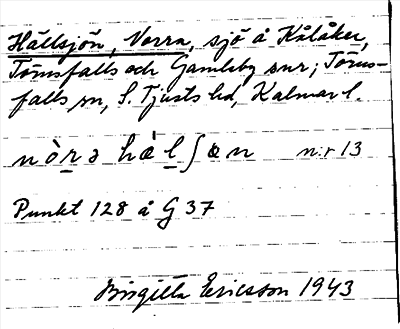 Hällsjön, Norra, sjö å Kålåker,
Törnsfalls och Gamleby snr; Törns-
falls sn, S. Tjusts hd, Kalmar l.
nòrə hæ̀lʃən nr 13
Punkt 128 å G 37
Birgitta Ericsson 1943